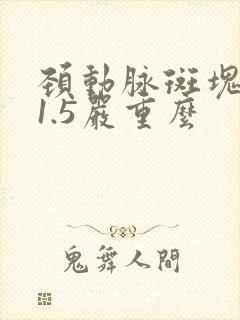 頚動脉斑塊
1.5嚴重麽
鬼舞人間